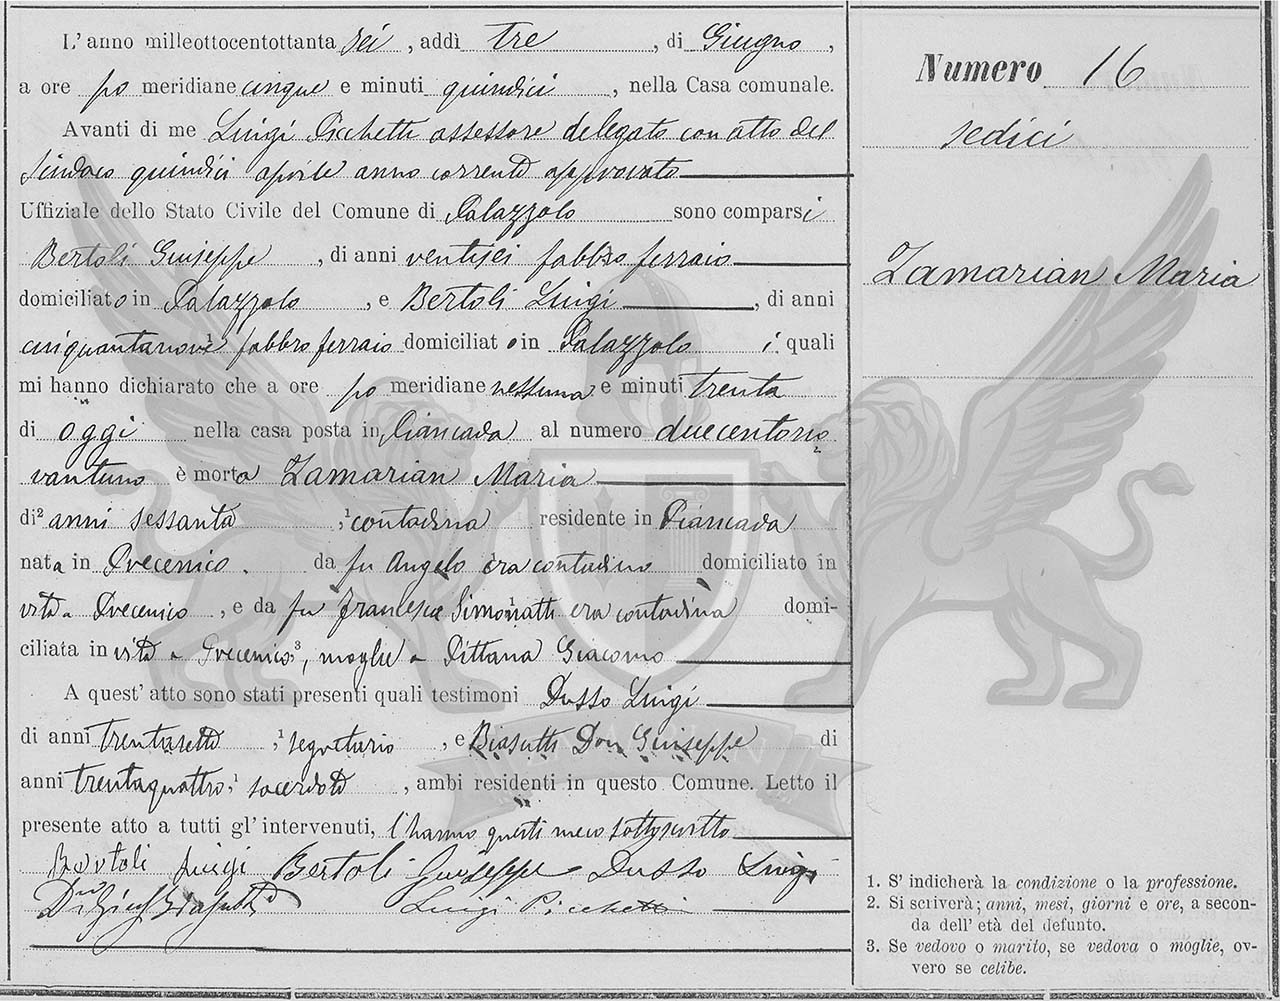 L'anno milleottocentottanta sei, addì tre, di Giugno,
a ore po meridiane cinque e minuti quindici, nella Casa comunale.
Avanti di me Luigi Picchetti assessore delegato con atto del
Sindaco quindici aprile anno corrente approvato
Uffiziale dello Stato Civile del Comune di Palazzolo sono comparsi
Bertoli Giuseppe, di anni ventisei fabbro ferraio
domiciliato in Palazzolo, e Bertoli Luigi, di anni
cinquantanove fabbro ferraio domiciliato in Palazzolo i quali
mi hanno dichiarato che a ore po meridiane nessuna e minuti trenta
di oggi nella casa posta in Piancada al numero duecentono
vantuno è morta Zamarian Maria
di² anni sessanta,¹ contadina residente in Piancada
nata in Precenico. da fu Angelo era contadino domiciliato in
vita a Precenico, e da fu Francesca Simonatti era contadina domi-
ciliata in vita a Precenico³, moglie a Pittana Giacomo
A quest'atto sono stati presenti quali testimoni Dusso Luigi
di anni trentasette,¹ segretario, e Biasutti Don Giuseppe di
anni trentaquattro,¹ sacerdote, ambi residenti in questo Comune. Letto il
presente atto a tutti gl'intervenuti, l'hanno questi meco sottoscritto
Bortoli Luigi Bertoli Giuseppe Dusso Luigi
Biasutti Luigi Picchetti
Numero 16
sedici
Zamarian Maria
1. S'indicherà la condizione o la professione.
2. Si scriverà; anni, mesi, giorni e ore, a secon-
da dell'età del defunto.
3. Se vedovo o marito, se vedova o moglie, ov-
vero se celibe.